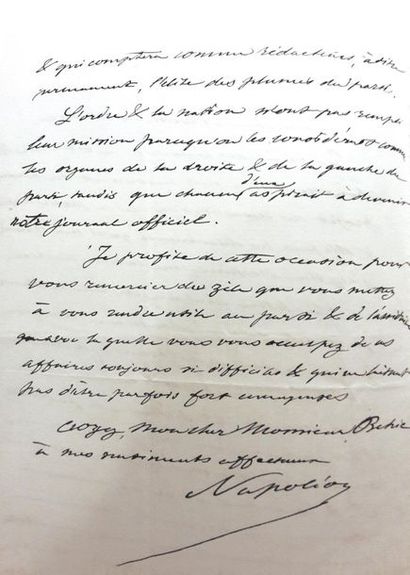 & qui comptera comme rédacteurs, à titre
permanent, l'élite des plumes du parti.
L'ordre & la nation n'ont pas rempli
leur mission parcequ'on les considérait comme
les organes de la droite & de la gauche du
parti, tandis que chacun d'eux aspirait à devenir
notre journal officiel.
Je profite de cette occasion pour
vous remercier du zèle que vous mettez
à vous rendre utile au parti & de
avec laquelle vous vous occupez de ces
affaires toujours si difficiles & qui ne laissent
pas d'être parfois fort ennuyeuses
Croyez, mon cher Monsieur Behic
à mes sentiments affectueux
Napoléon